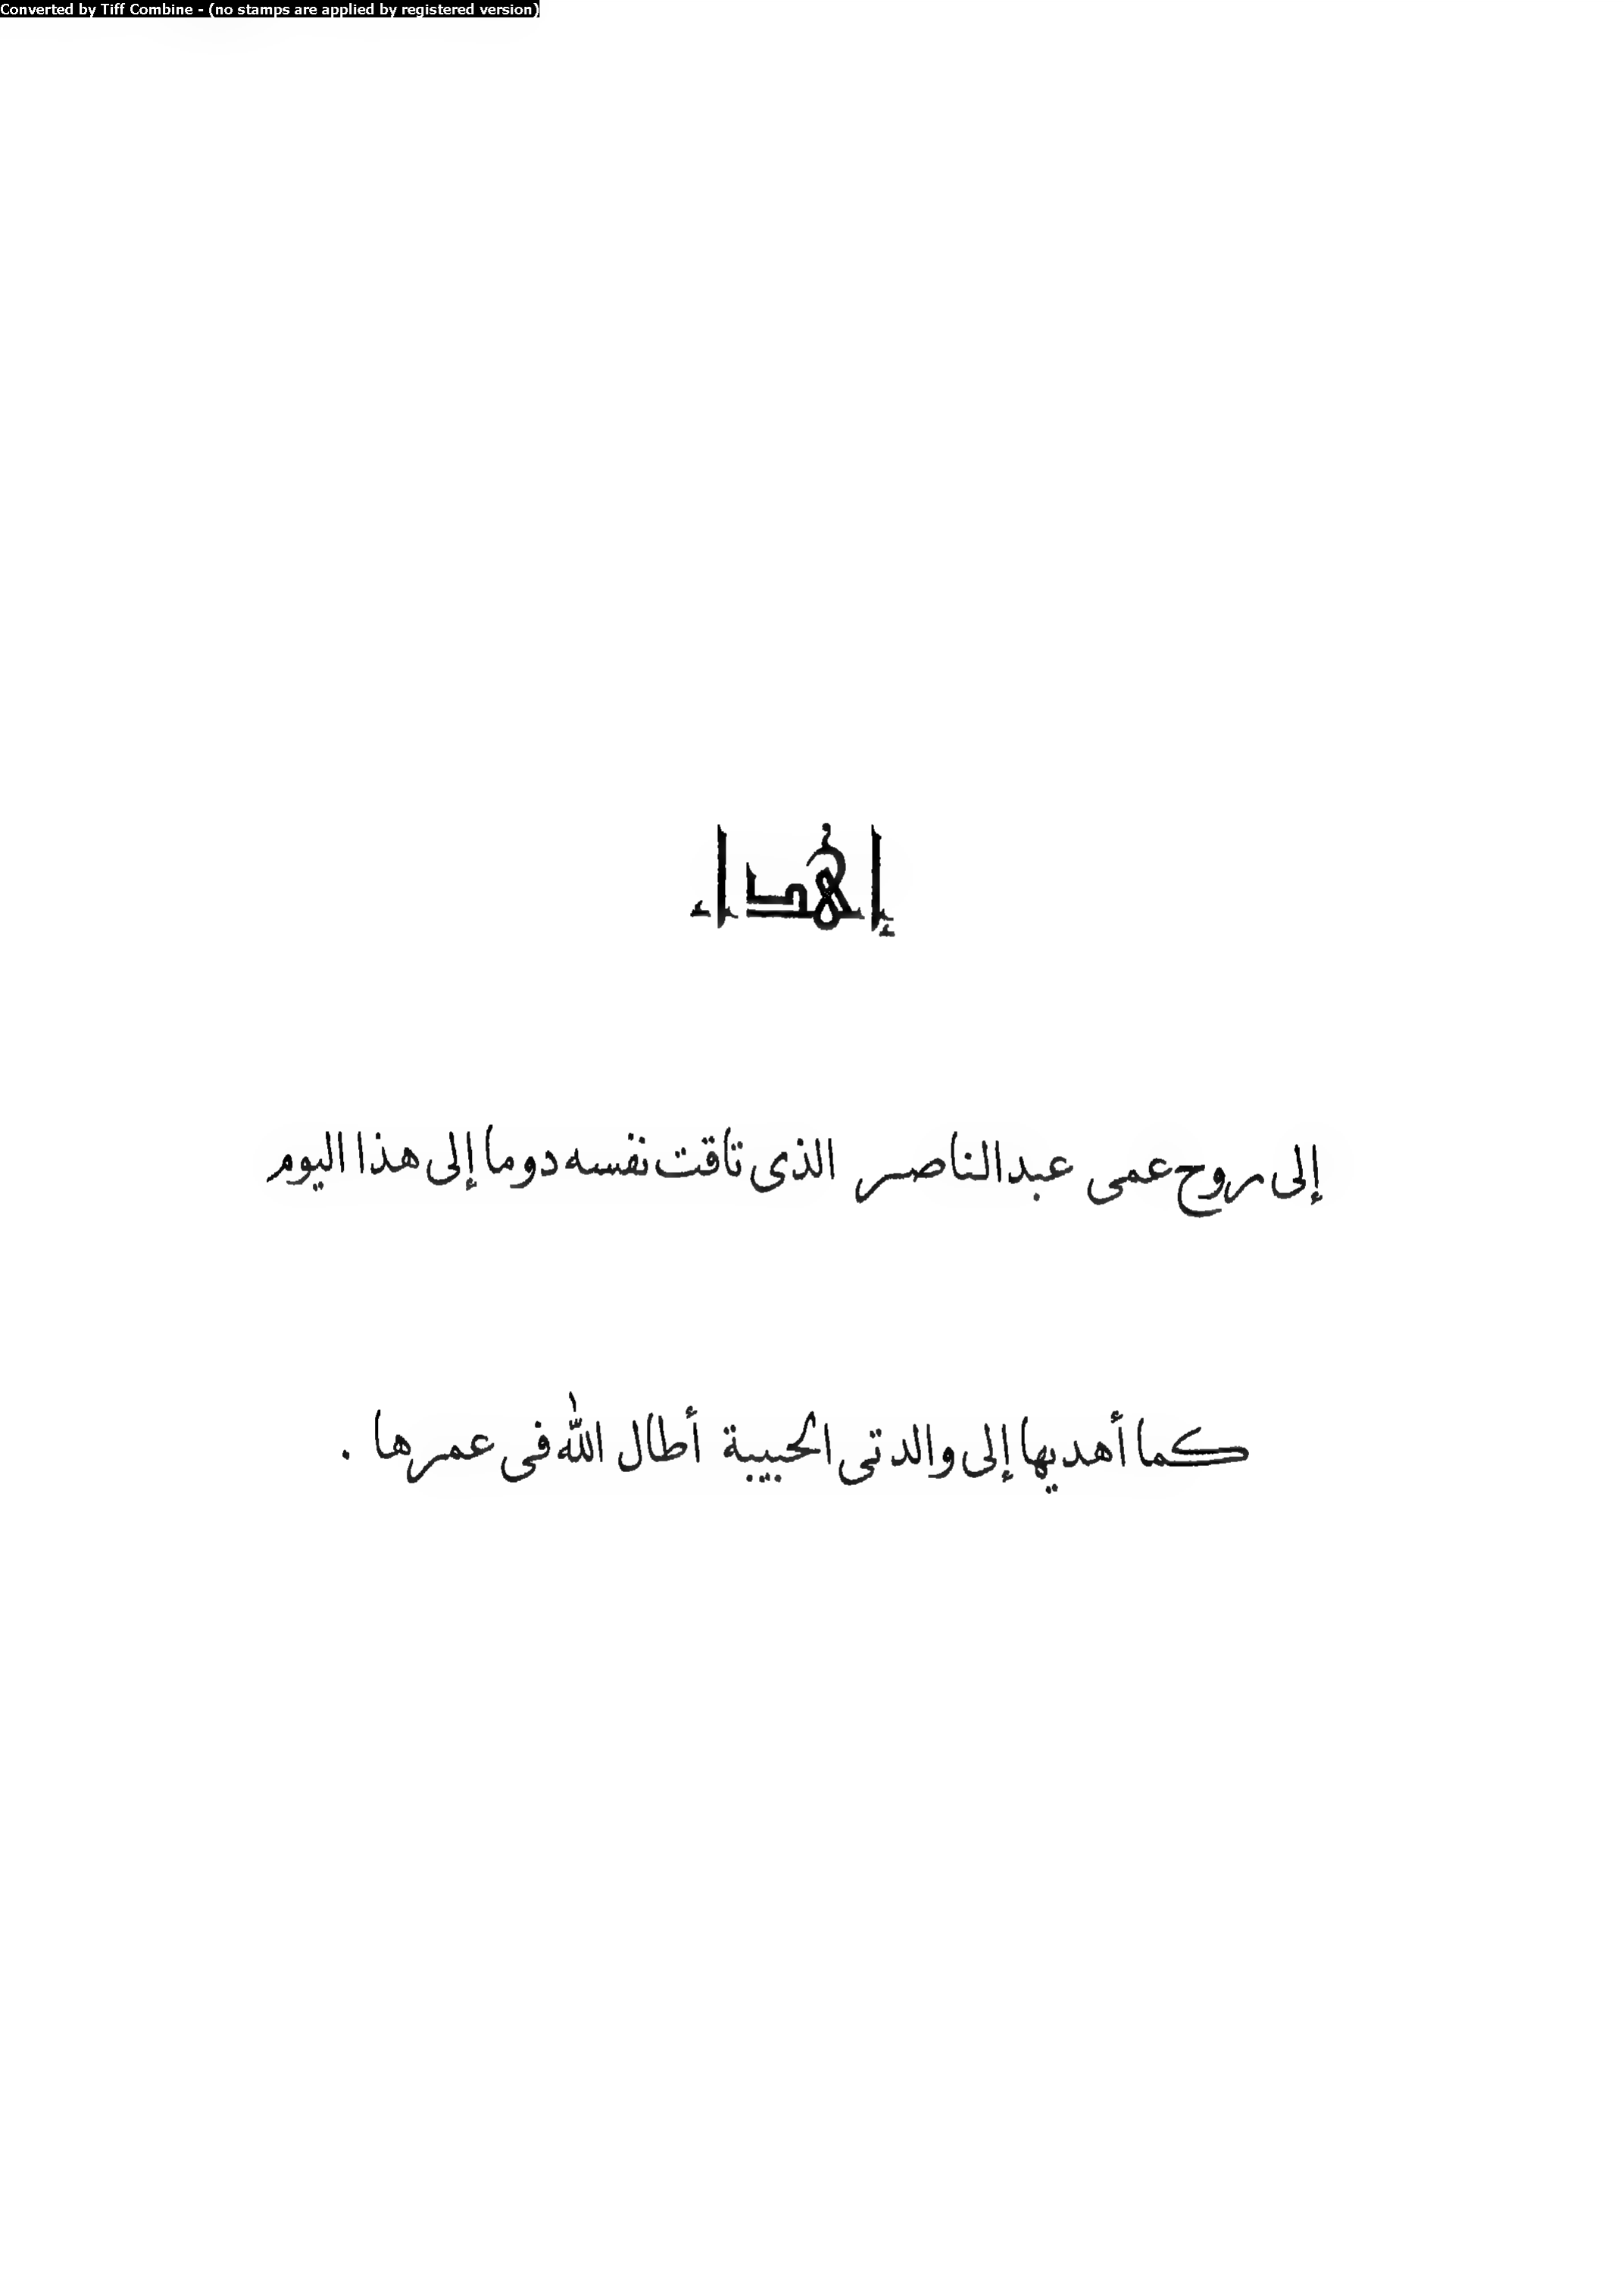 Converted by Tiff Combine - (no stamps are applied by registered version)
إهداء
إلى روح عمى عبد الناصر الذى تاقت نفسه دوما إلى هذا اليوم
كما أهديها إلى والدتى الحبيبة أطال الله فى عمرها .